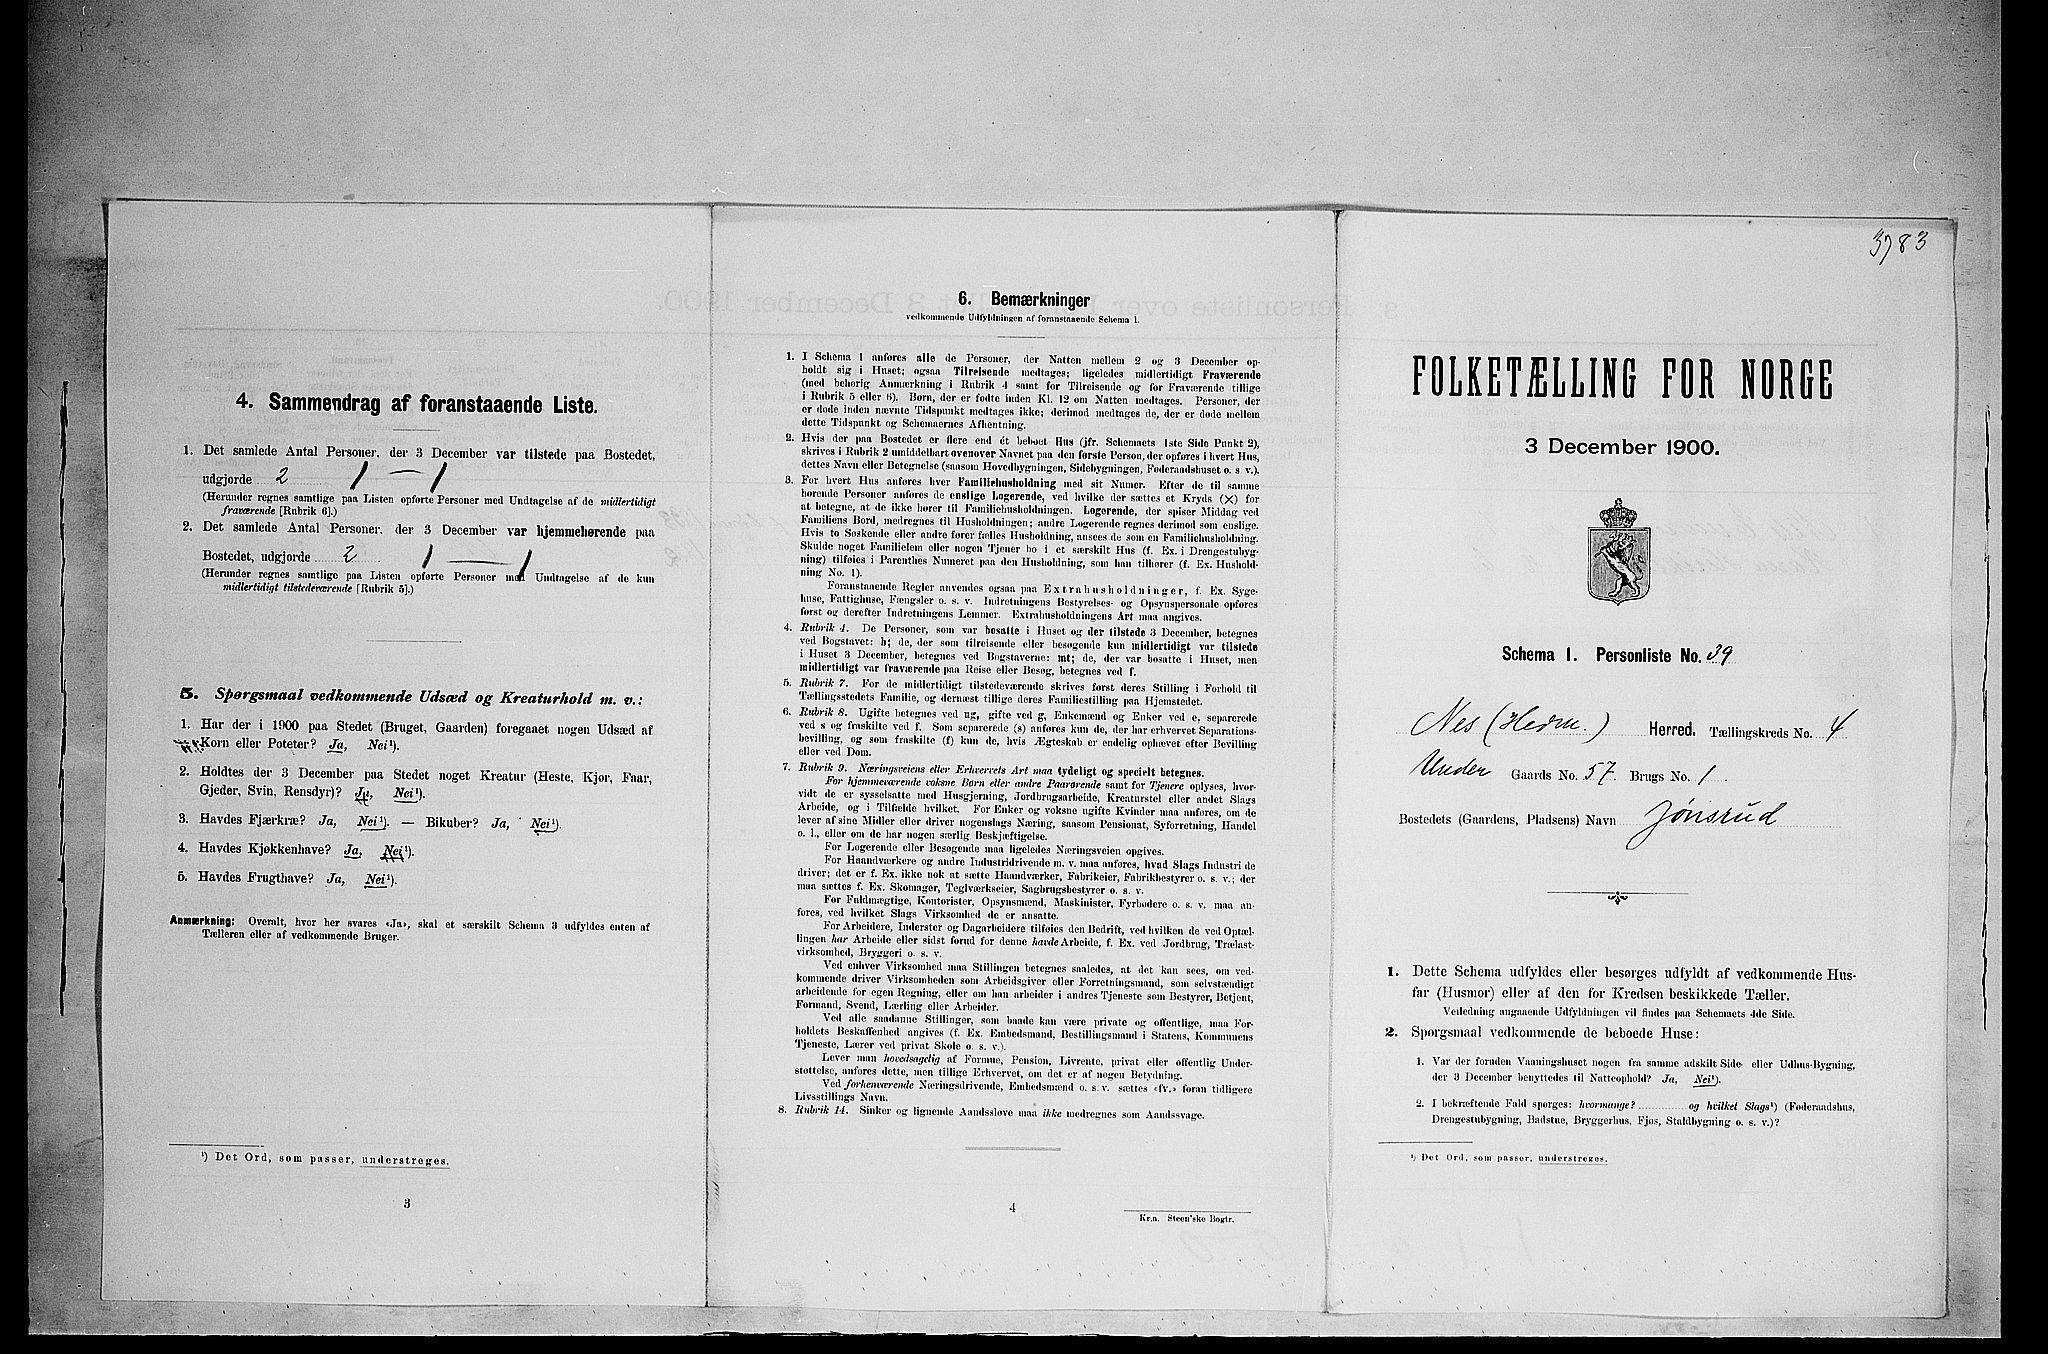 4. Sammendrag af foranstaaende Liste.
1. Det samlede Antal Personer, der 3 December var tilstede paa Bostedet,
udgjorde 2 1 — 1
(Herunder regnes samtlige paa Listen opførte Personer med Undtagelse af de midlertidigt
fraværende [Rubrik 6].)
2. Det samlede Antal Personer, der 3 December var hjemmehørende paa
Bostedet, udgjorde 2 . 1 — 1
(Herunder regnes samtlige paa Listen opførte Personer med Undtagelse af de kun
midlertidigt tilstedeværende [Rubrik 5].)
5. Spørgsmaal vedkommende Udsæd og Kreaturhold m. v.:
1. Har der i 1900 paa Stedet (Bruget, Gaarden) foregaaet nogen Udsæd af
Korn eller Poteter? Ja, Nei¹).
2. Holdtes der 3 December paa Stedet noget Kreatur (Heste, Kjør, Faar,
Gjeder, Svin, Rensdyr)? Ja, Nei¹).
3. Havdes Fjærkræ? Ja, Nei¹). — Bikuber? Ja, Nei¹).
4. Havdes Kjøkkenhave? Ja, Nei¹).
5. Havdes Frugthave? Ja, Nei¹).
Anmærkning: Overalt, hvor her svares «Ja», skal et særskilt Schema 3 udfyldes enten af
Tælleren eller af vedkommende Bruger.
¹) Det Ord, som passer, understreges.
3
6. Bemærkninger
vedkommende Udfyldningen af foranstaaende Schema 1.
1. I Schema 1 anføres alle de Personer, der Natten mellem 2 og 3 December op-
holdt sig i Huset; ogsaa Tilreisende medtages; ligeledes midlertidigt Fraværende
(med behørig Anmærkning i Rubrik 4 samt for Tilreisende og for Fraværende tillige
i Rubrik 5 eller 6). Børn, der er fødte inden Kl. 12 om Natten medtages. Personer, der
er døde inden nævnte Tidspunkt medtages ikke; derimod medtages de, der er døde mellem
dette Tidspunkt og Schemaernes Afhentning.
2. Hvis der paa Bostedet er flere end ét beboet Hus (jfr. Schemaets 1ste Side Punkt 2),
skrives i Rubrik 2 umiddelbart ovenover Navnet paa den første Person, der opføres i hvert Hus,
dettes Navn eller Betegnelse (saasom Hovedbygningen, Sidebygningen, Føderaadshuset o. s. v.).
3. For hvert Hus anføres hver Familiehusholdning med sit Numer. Efter de til samme
hørende Personer anføres de enslige Logerende, ved hvilke der sættes et Kryds (×) for
at betegne, at de ikke hører til Familiehusholdningen. Logerende, der spiser Middag ved
Familiens Bord, medregnes til Husholdningen; andre Logerende regnes derimod som enslige.
Hvis to Søskende eller andre fører fælles Husholdning, ansees de som en Familiehusholdning.
Skulde noget Familielem eller nogen Tjener bo i et særskilt Hus (f. Ex. i Drengestubyg-
ning) tilføies i Parenthes Numeret paa den Husholdning, som han tilhører (f. Ex. Hushold-
ning No. 1).
Foranstaaende Regler anvendes ogsaa paa Extrahusholdninger, f. Ex. Syge-
huse, Fattighuse, Fængsler o. s. v. Indretningens Bestyrelses- og Opsynspersonale opføres
først og derefter Indretningens Lemmer. Extrahusholdningens Art maa angives.
4. Rubrik 4. De Personer, som var bosatte i Huset og der tilstede 3 December, betegnes
ved Bogstavet: b; de, der som tilreisende eller besøgende kun midlertidigt var tilstede
i Huset 3 December, betegnes ved Bogstaverne: mt; de, der var bosatte i Huset, men
midlertidigt var fraværende paa Reise eller Besøg, betegnes ved f.
5. Rubrik 7. For de midlertidigt tilstedeværende skrives først deres Stilling i Forhold til
Tællingsstedets Familie, og dernæst tillige deres Familiestilling paa Hjemstedet.
6. Rubrik 8. Ugifte betegnes ved ug, gifte ved g, Enkemænd og Enker ved e, separerede
ved s og fraskilte ved f. Som separerede (s) anføres kun de, der har erhvervet Separations-
bevilling, og som fraskilte (f) kun de, hvis Ægteskab er endelig ophævet efter Bevilling
eller ved Dom.
7. Rubrik 9. Næringsveiens eller Erhvervets Art maa tydeligt og specielt betegnes.
For hjemmeværende voksne Børn eller andre Paarørende samt for Tjenere oplyses, hvor-
vidt de er sysselsatte med Husgjerning, Jordbrugsarbeide, Kreaturstel eller andet Slags
Arbeide, og i Tilfælde hvilket. For Enker og voksne ugifte Kvinder maa anføres, om de
lever af sine Midler eller driver nogenslags Næring, saasom Pensionat, Syforretning, Handel
o. l., eller om de har nogen særlig Beskjæftigelse.
For Logerende eller Besøgende maa ligeledes Næringsveien opgives.
For Haandværkere og andre Industridrivende m. v. maa anføres, hvad Slags Industri de
driver; det er f. Ex. ikke nok at sætte Haandværker, Fabrikeier, Fabrikbestyrer o. s. v.; der
maa sættes f. Ex. Skomager, Teglværkseier, Sagbrugsbestyrer o. s. v.
For Fuldmægtige, Kontorister, Opsynsmænd, Maskinister, Fyrbødere o. s. v. maa an-
føres, ved hvilket Slags Virksomhed de er ansatte.
For Arbeidere, Inderster og Dagarbeidere tilføies den Bedrift, ved hvilken de ved Optæl-
lingen har Arbeide eller sidst forud for denne havde Arbeide, f. Ex. ved Jordbrug, Trælast-
virksomhed, Bryggeri o. s. v.
Ved enhver Virksomhed maa Stillingen betegnes saaledes, at det kan sees, om ved-
kommende driver Virksomheden som Arbeidsgiver eller Forretningsmand, som selvstændigt
arbeidende for egen Regning, eller om han arbeider i andres Tjeneste som Bestyrer, Betjent,
Formand, Svend, Lærling eller Arbeider.
Ved alle saadanne Stillinger, som baade kan være private og offentlige, maa For-
holdets Beskaffenhed angives (f. Ex. Embedsmand, Bestillingsmand i Statens, Kommunens
Tjeneste, Lærer ved privat Skole o. s. v.).
Lever man hovedsagelig af Formue, Pension, Livrente, privat eller offentlig Under-
støttelse, anføres dette, men tillige Erhvervet, om det er af nogen Betydning.
Ved forhenværende Næringsdrivende, Embedsmænd o. s. v. sættes «fv.» foran tidligere
Livsstillings Navn.
8. Rubrik 14. Sinker og lignende Aandssløve maa ikke medregnes som Aandssvage.
4
Kr.a. Steen'ske Bogtr.
3783
FOLKETÆLLING FOR NORGE
3 December 1900.
Schema 1. Personliste No. 39
Nes (Hedm.) Herred. Tællingskreds No. 4
Under Gaards No. 57. Brugs No. 1.
Bostedets (Gaardens, Pladsens) Navn Jønsrud
1. Dette Schema udfyldes eller besørges udfyldt af vedkommende Hus-
far (Husmor) eller af den for Kredsen beskikkede Tæller.
Veiledning angaaende Udfyldningen vil findes paa Schemaets 4de Side.
2. Spørgsmaal vedkommende de beboede Huse:
1. Var der foruden Vaaningshuset nogen fra samme adskilt Side- eller Udhus-Bygning,
der 3 December benyttedes til Natteophold? Ja, Nei¹).
2. I bekræftende Fald spørges: hvormange? og hvilket Slags¹) (Føderaadshus,
Drengestubygning, Badstue, Bryggerhus, Fjøs, Staldbygning o. s. v.)?
¹) Det Ord, som passer, understreges.